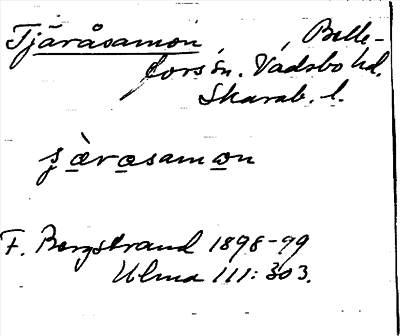 Tjäråsamon, Belle-
fors sn. Vadsbo hd.
Skarab. l.
ʂæ̀rasamɷn
F. Bergstrand 1898-99
Ulma 111:303.